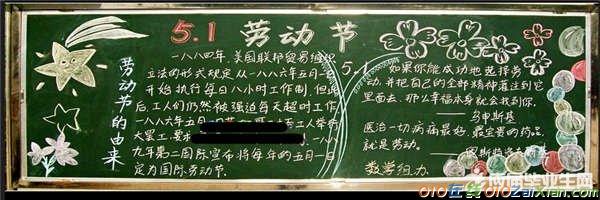 5.1 劳动节
劳动节的由来
一八八四年,美国联邦贸易组织
立法的形式规定从一八八六年五月一
开始执行每日八小时工作制,但此
后,工人们仍然被强迫每天超时工作
一八八六年五月一
大罢工,要求 一八八
九年第二国际宣布将每年的五月一日
定为国际劳动节.
5.1
如果你能成功地选择劳
动,并把自己的全部精神灌注到它
里面去,那么幸福本身就会找到你.
医治一切病痛最好、最宝贵的药品,
就是劳动。
数学组